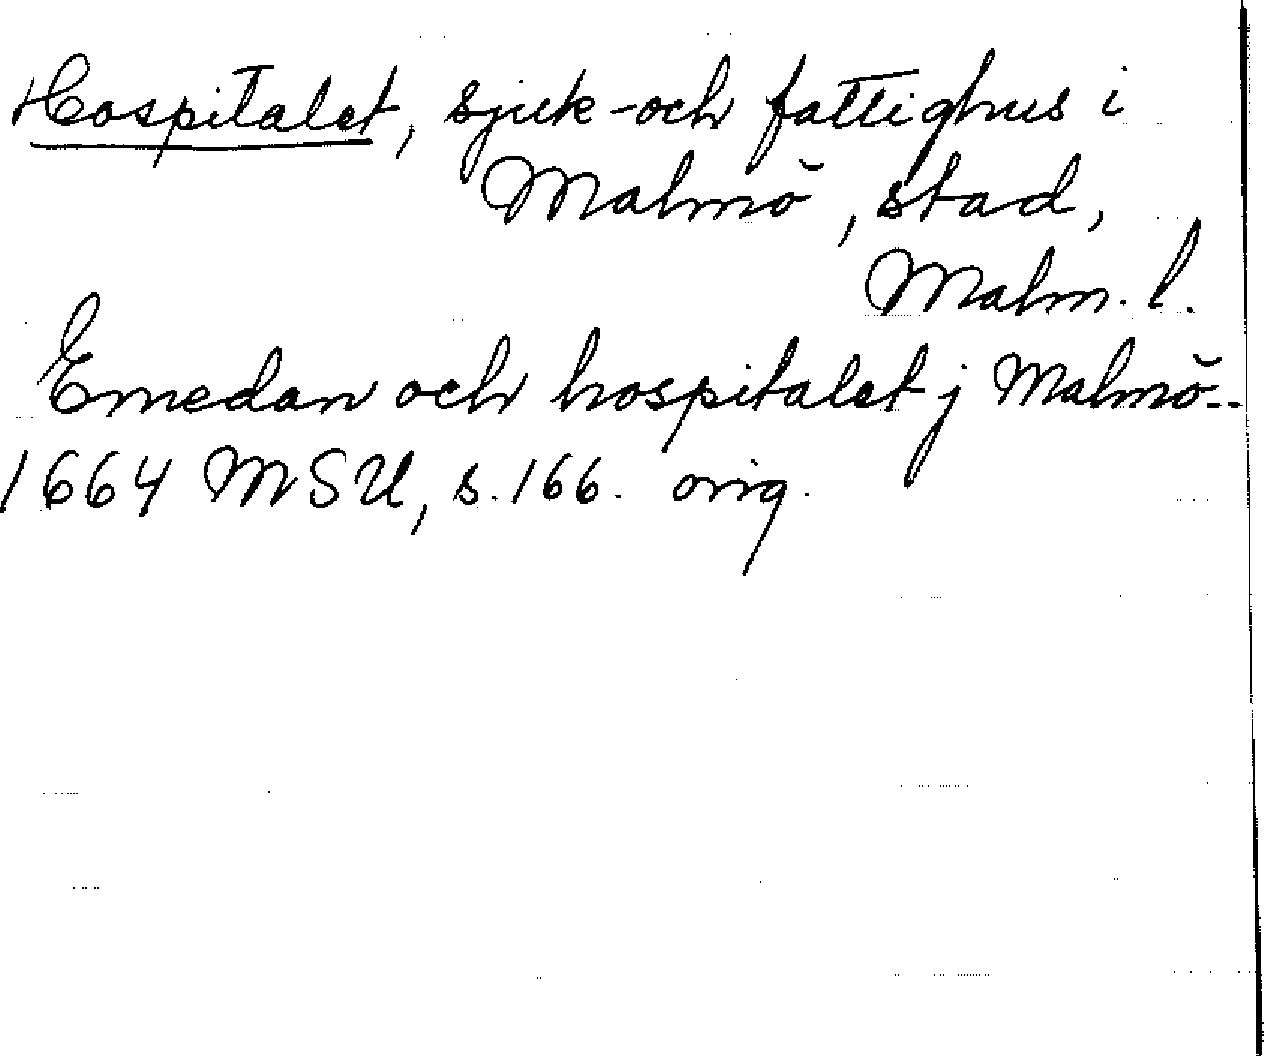 Hospitalet, sjuk- och fattighus i
Malmö, stad,
Malm. l.
Emedan och hospitalet j Malmö--
1664 MSU, s. 166. orig.